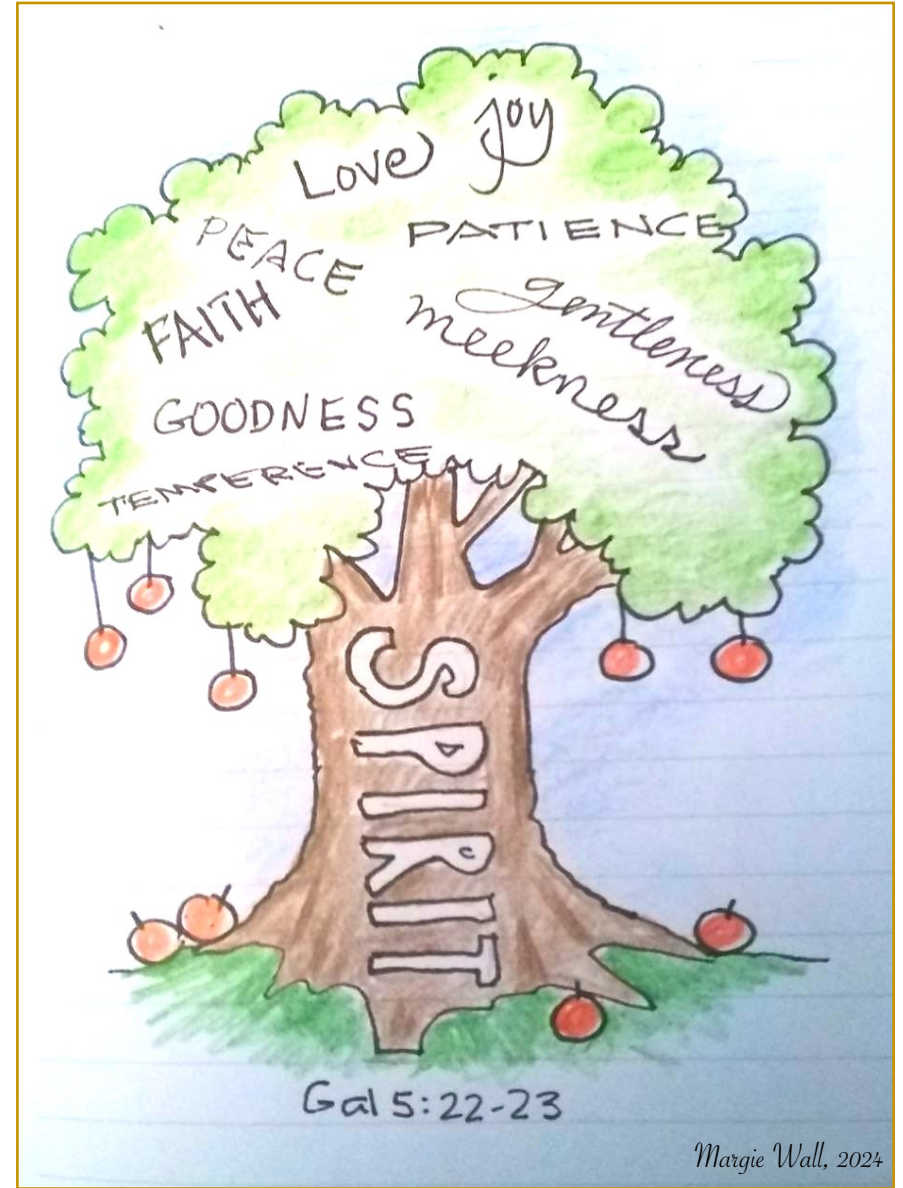 Love joy
PEACE PATIENCE
FAITH gentleness
meekness
GOODNESS
TEMPERENCE
SPIRIT
Gal 5:22-23
Margie Wall, 2024